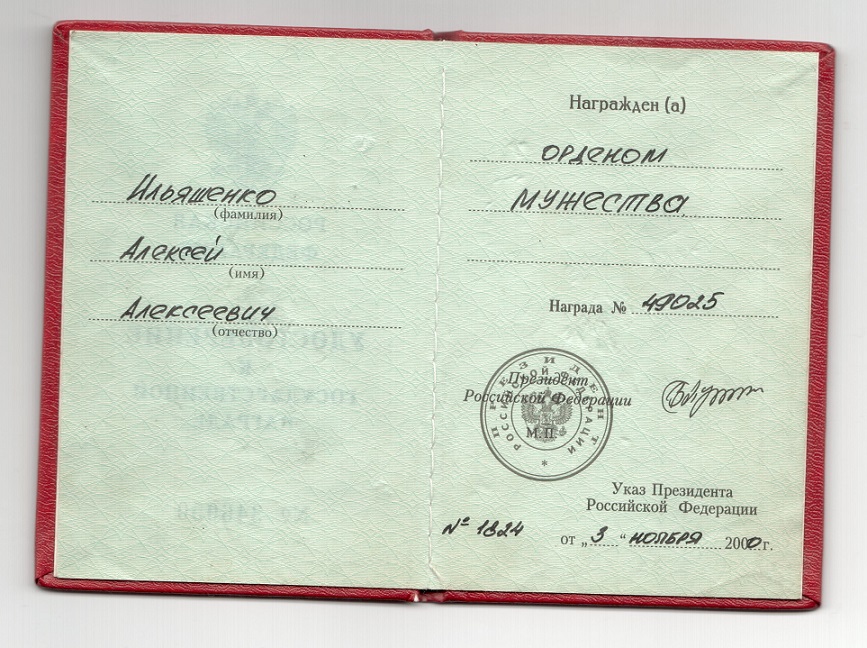 Ильяшенко
(фамилия)
Алексей
(имя)
Алексеевич
(отчество)
Награжден (а)
орденом
Мужества
Награда № 49025
Президент
Российской Федерации
М.П.
ПРЕЗИДЕНТ
РОССИЙСКОЙ ФЕДЕРАЦИИ
Указ Президента
Российской Федерации
№ 1824 от „ 3 “ ноября 2000 г.